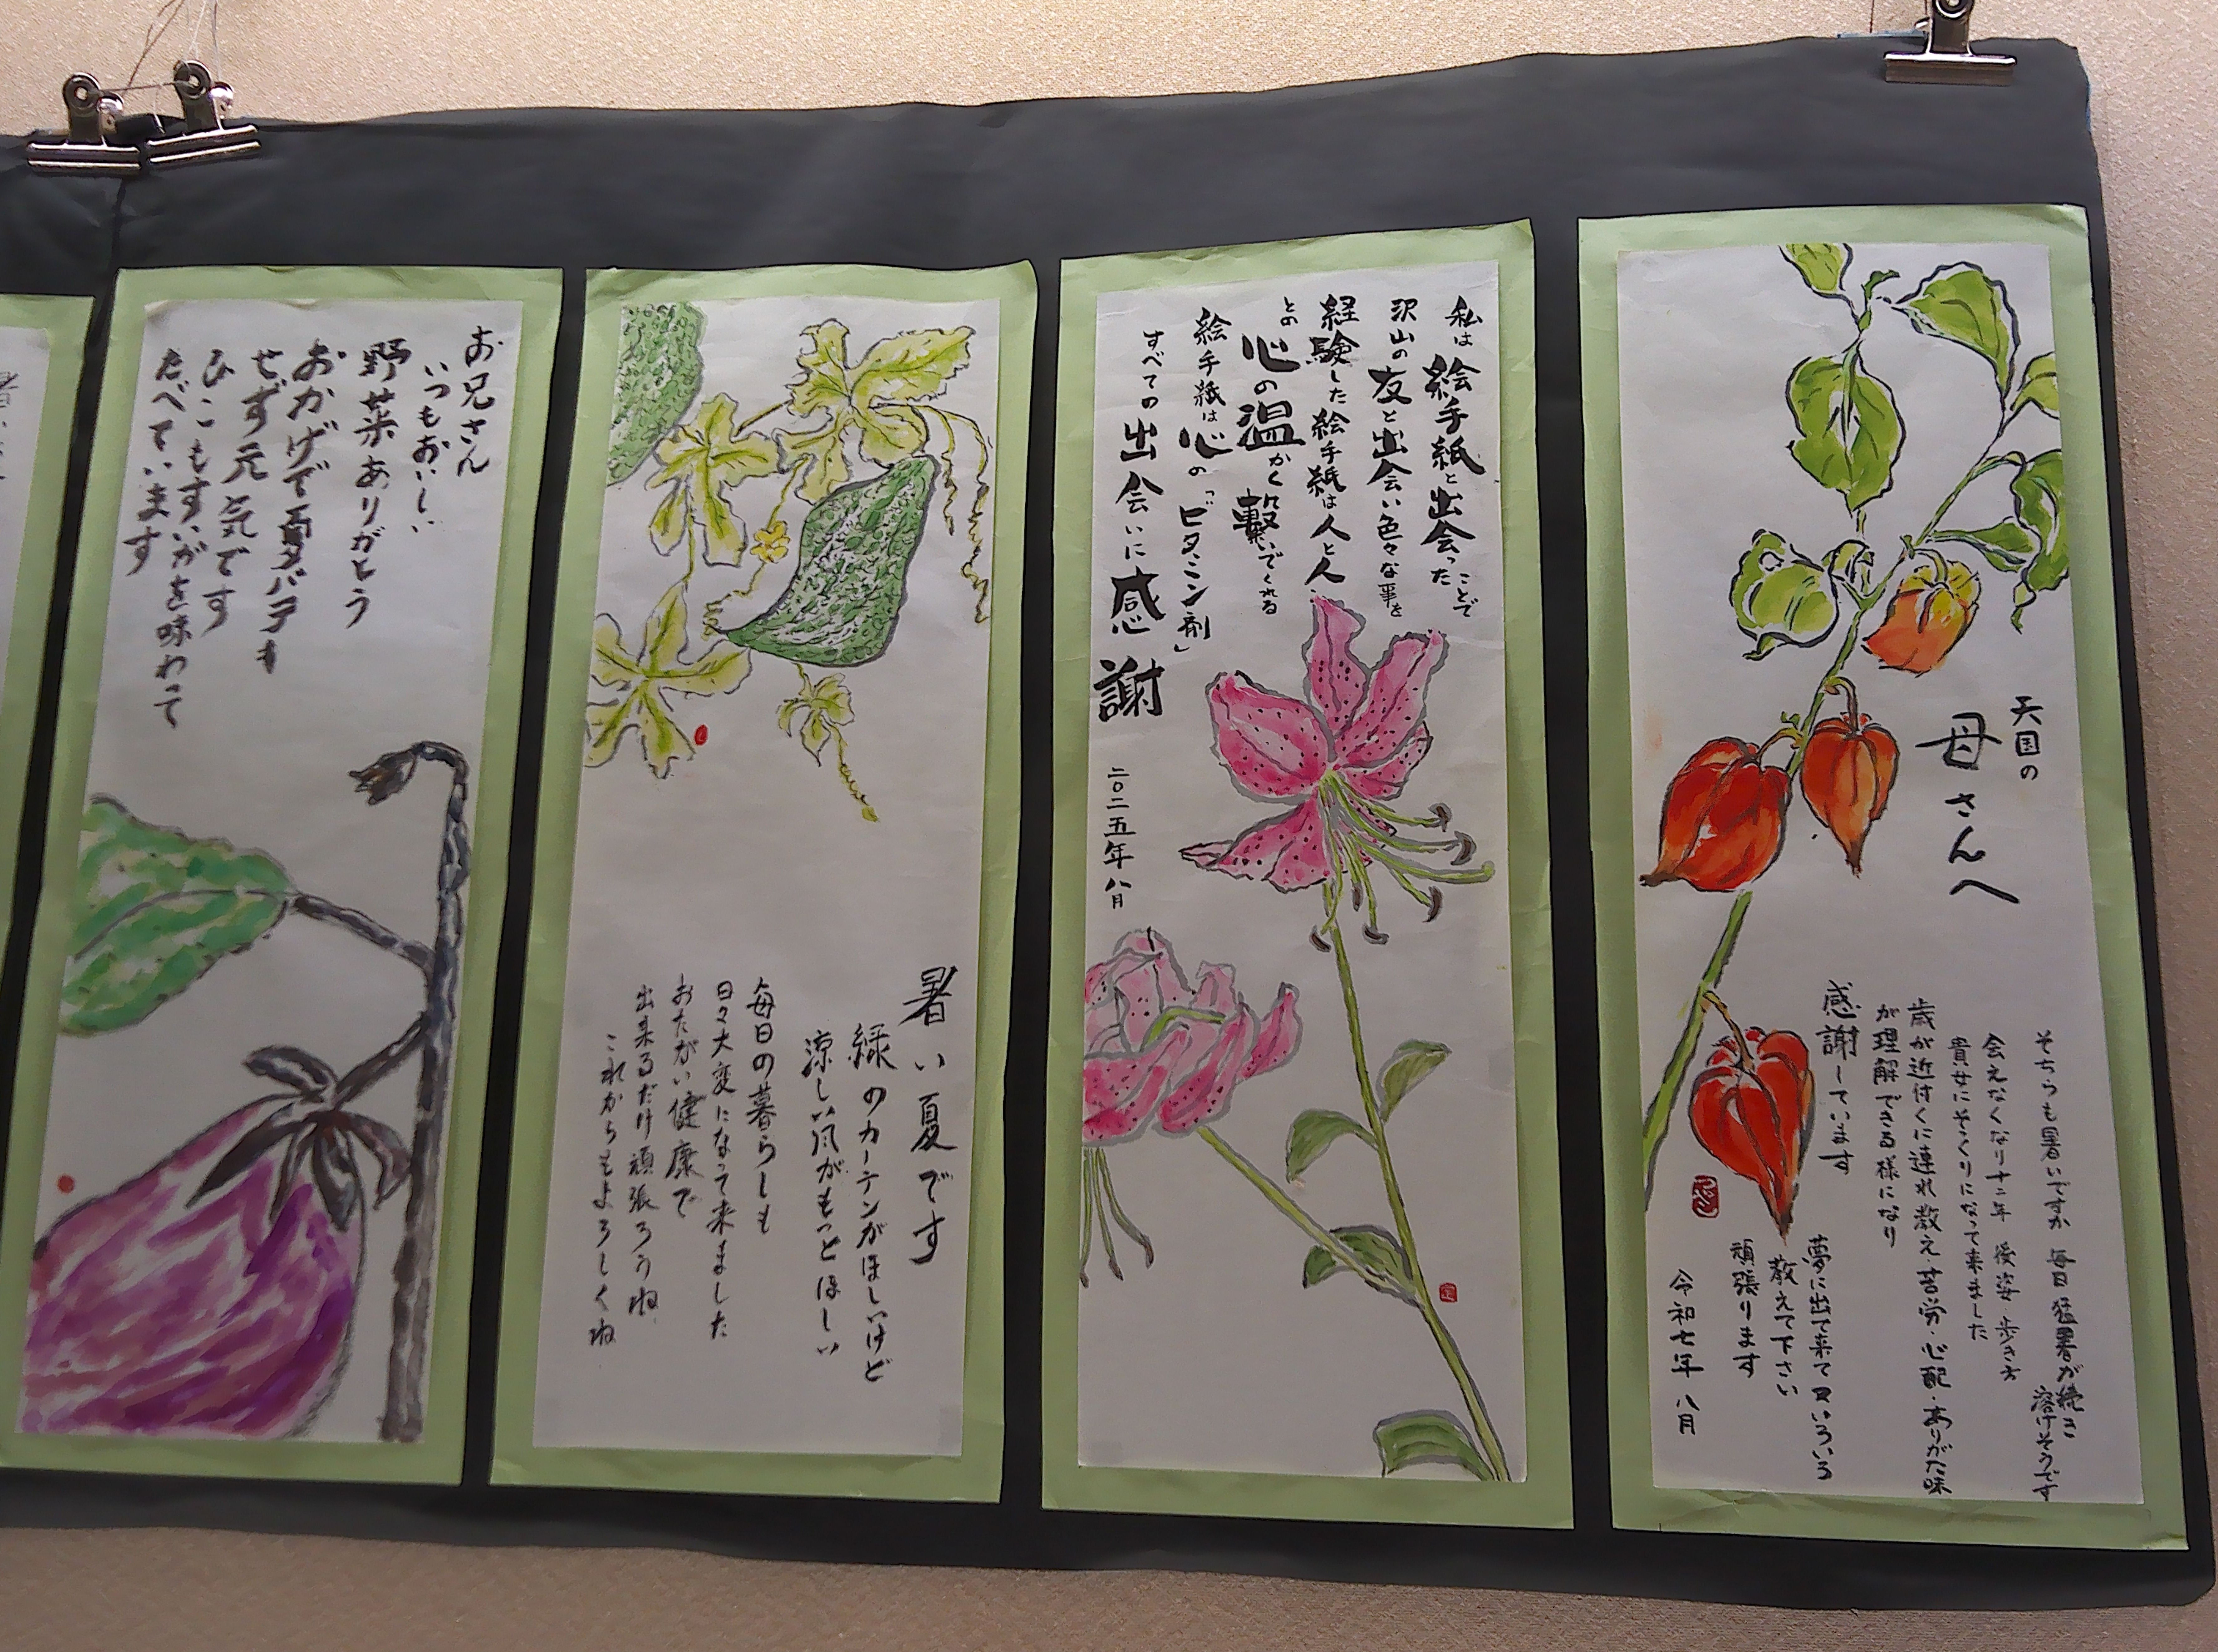 天国の
母さんへ
そちらも暑いですか 毎日猛暑が続き
溶けそうです
会えなくなり十二年 後姿・歩き方
貴女にそっくりになって来ました
歳が近付くに連れ教え・苦労・心配・ありがた味
が理解できる様になり
感謝しています
夢に出て来て又いろいろ
教えて下さい
頑張ります
令和七年 八月
私は絵手紙と出会ったことで
沢山の友と出会い色々な事を
経験した 絵手紙は人と人
との心の温かく繋いでくれる
絵手紙は心の「ビタミン剤」
すべての出会いに感謝
二〇二五年 八月
暑い夏です
緑のカーテンがほしいけど
涼しい風がもっとほしい
毎日の暮らしも
日々大変になって来ました
おたがい健康で
出来るだけ頑張ろうね
これからもよろしくね
お兄さん
いつもおいしい
野菜ありがとう
おかげで夏バテも
せず元気です
ひこもすいかを味わって
たべています